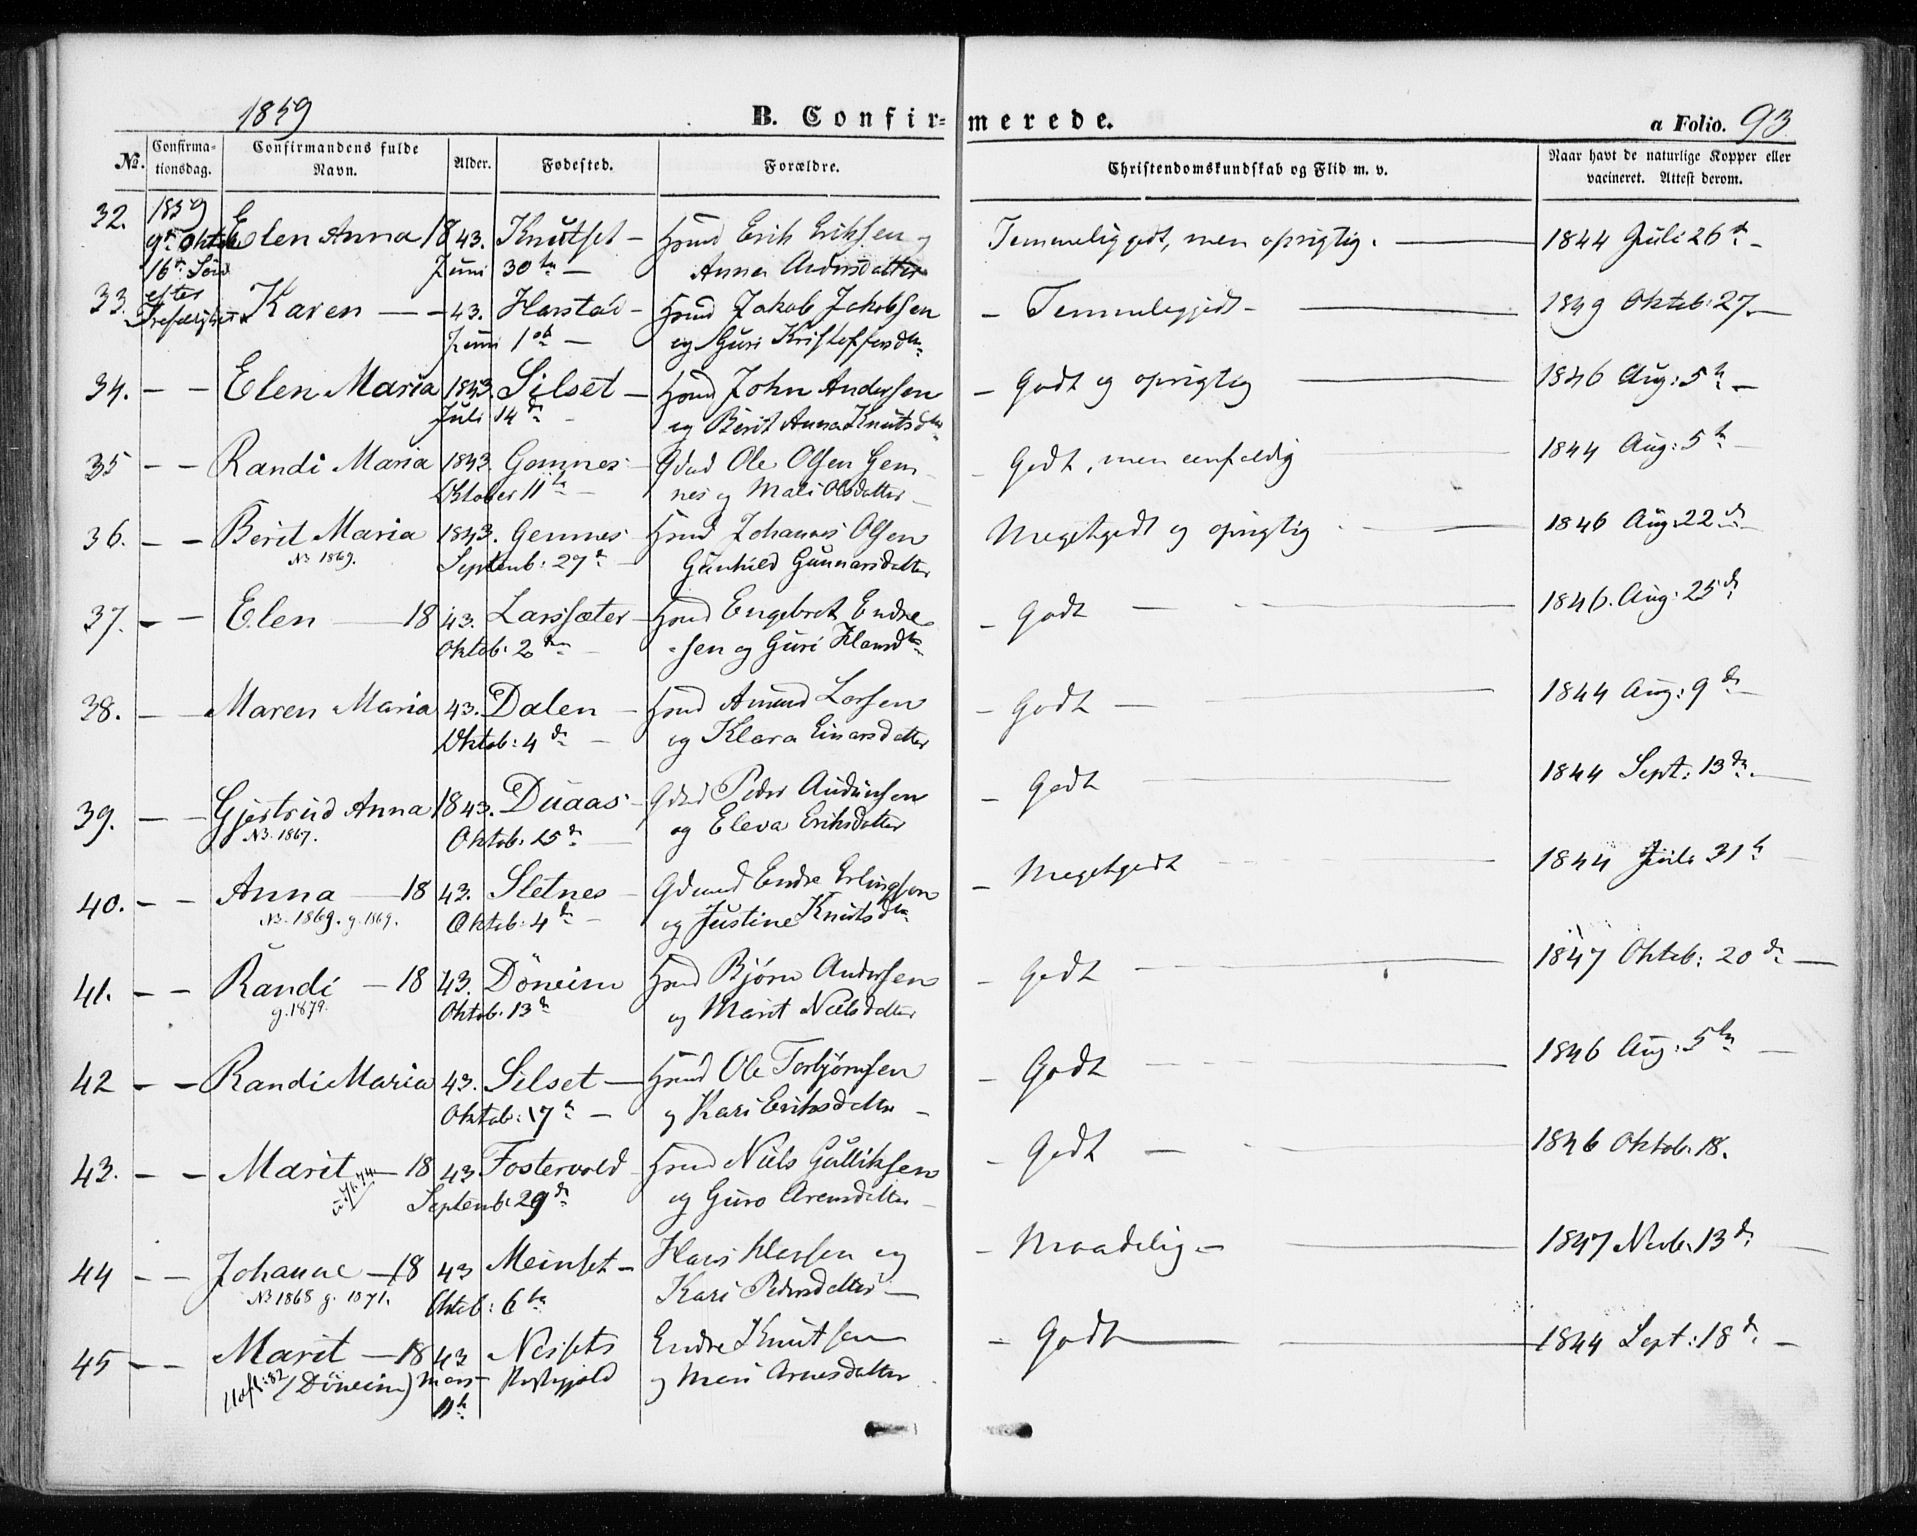 1859
B. Confir- merede.
a Folio. 93
No. Confirmationsdag. Confirmandens fulde Navn. Alder. Fødested. Forældre. Christendomskundskab og Flid m. v. Naar havt de naturlige Kopper eller vacineret. Attest derom.
32. 1859 Elen Anna 1843. Knutset – Hmd Erik Eriksen og Temmeliggodt, men oprigtig. 1844 Juli 26de –
9de Oktob 16de Sønd Juni 30te – Anna Andersdatter
33. efter Trefoldighed Karen – – 43. Harstad – Hmd Jakob Jakobsen – Temmeliggodt – 1849 Oktob: 27. –
Juni 1ste – og Guri Kristoffersdtr
34. – – Elen Maria 1843. Silset – Hmd John Andersen – Godt og oprigtig 1846 Aug: 5te –
Juli 14de – og Berit Anna Knutsdtr
35 – – Randi Maria 1843. Gemnes – Gdmd Ole Olsen Gem- – Godt, men eenfoldig 1844 Aug: 5te –
Oktober 11te – nes og Mali Olsdatter –
36. – – Berit Maria 1843. Gemnes – Hmd Johannes Olsen Megetgodt og oprigtig 1846 Aug: 22de –
N3 1869. Septemb: 27de – Gunhild Gunnarsdatter
37. – – Elen – 1843. Larssæter – Hmd Engebret Endre- – Godt – 1846. Aug: 25de
Oktob: 2den – sen og Guri
38. – – Maren Maria 43. Dalen – Hmd Amund Larsen – Godt – 1844 Aug: 9de –
Oktob: 4de – og Klara Einarsdatter
39. – – Gjertrud Anna 1843. Duaas – Gdmd Peder Audunsen – Godt 1844 Sept: 13de. –
N3. 1867. Oktob: 15de – og Eleva Eriksdatter
40. – – Anna – 1843. Sletnes – Gdmd Endre Erlingsen – Megetgodt 1844 Juli 31te –
N3. 1869. g. 1869. Oktob: 4de – og Justine Knutsdtr
41. – – Randi – 1843. Döneim Hmd Bjørn Andersen – Godt 1847 Oktob: 20de –
g. 1879. Oktob. 13de og Marit Nielsdatter
42 – – Randi Maria 43. Silset – Hmd Ole Torbjørnsen – Godt 1846 Aug: 5te –
Oktob: 17de – og Kari Eriksdatter –
43. – – Marit – 1843 Fostervold – Hmd Niels Gulliksen – Godt – 1846 Oktob. 18.
Septemb. 29de og Guro Arensdatter –
44 – – Johanne – 1843 Meinset – Hans og – Maadelig – 1847 Novb. 13de –
N3 1868 g. 1871. Oktob: 6te Kari Pedersdatter –
45 – – Marit – 1843 Neisset Endre Knutsen – Godt – 1844 Sept: 18de –
(Döneim) Mars og Mari Arnesdatter
11te